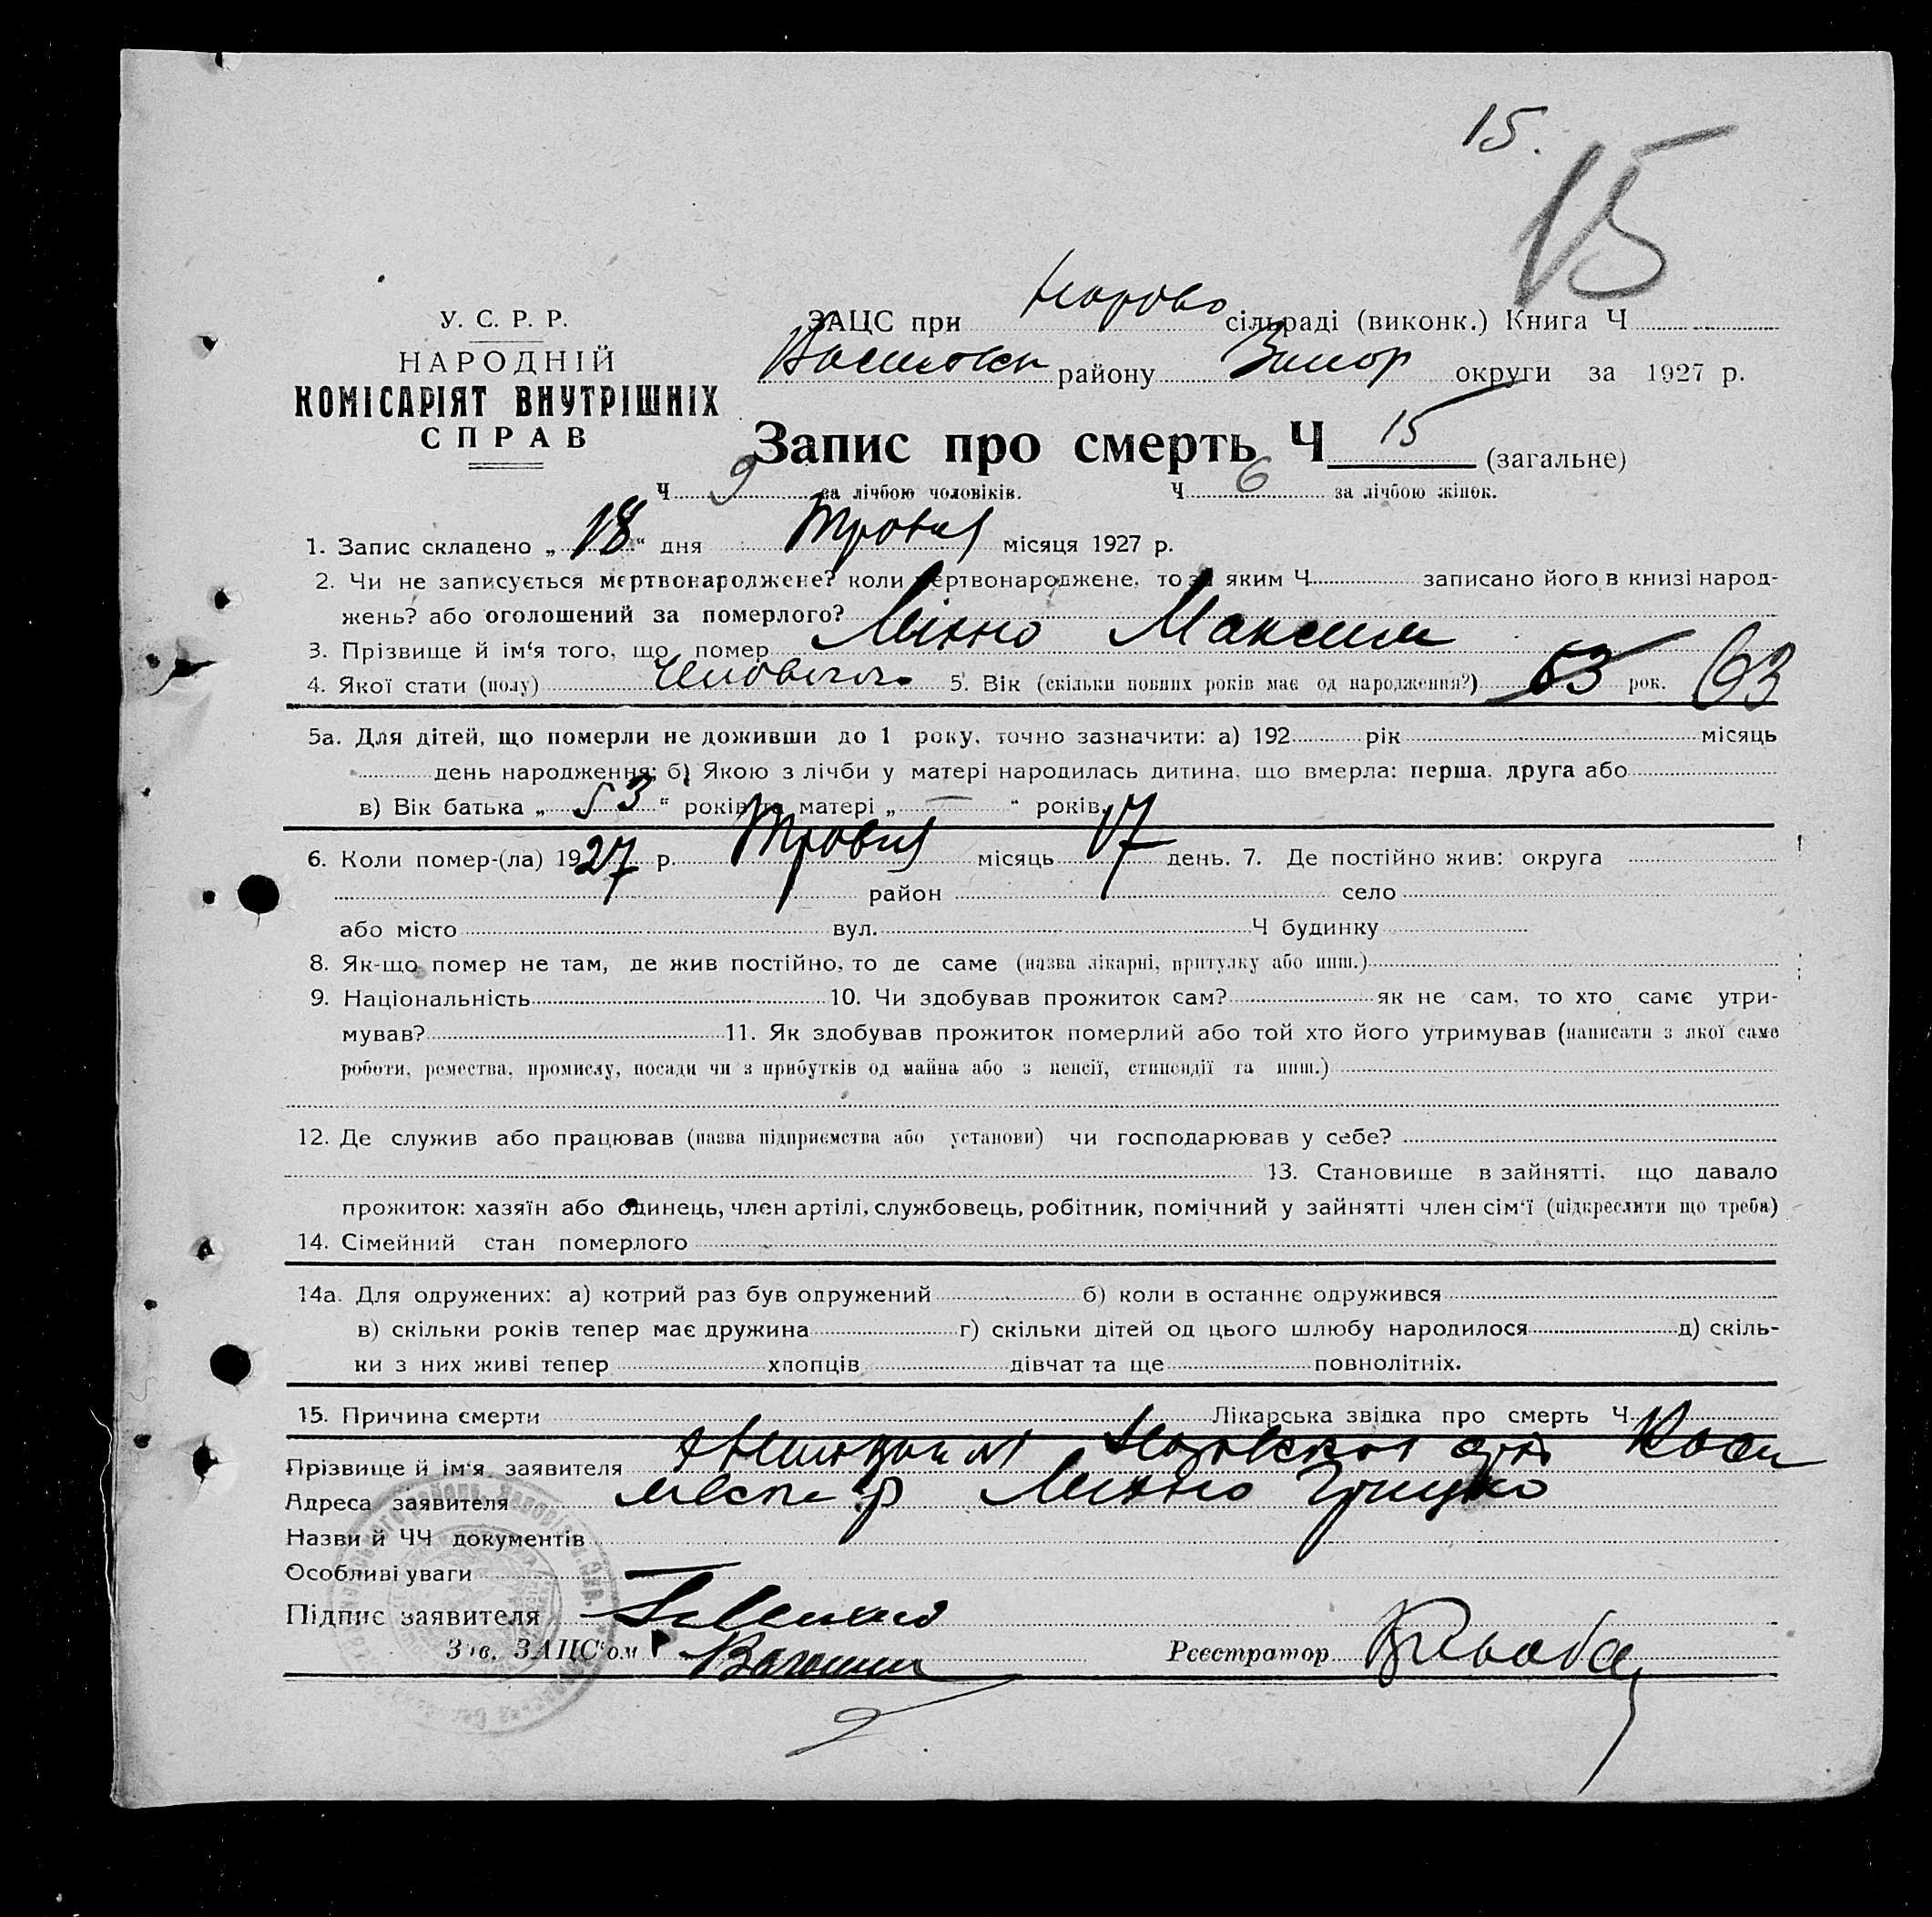 15.
15
У. С. Р. Р.
НАРОДНІЙ
КОМІСАРІЯТ ВНУТРІШНІХ
СПРАВ
ЗАЦС при сільраді (виконк.) Книга Ч
району Запор округи за 1927 р.
Запис про смерть Ч 15 (загальне)
Ч 9 за лічбою чоловіків. Ч 6 за лічбою жінок.
1. Запис складено „ 18 “ дня Травня місяця 1927 р.
2. Чи не записується мертвонароджене? коли мертвонароджене, то за яким Ч записано його в книзі народ-
жень? або оголошений за померлого?
3. Прізвище й ім‘я того, що помер Міхно Максим
4. Якої стати (полу) 5. Вік (скільки повних років має од народження?) 53 рок. 63
5а. Для дітей, що померли не доживши до 1 року, точно зазначити: а) 192 рік місяць
день народження; б) Якою з лічби у матері народилась дитина, що вмерла: перша, друга або
в) Вік батька „ 53 “ років та матері „ — “ років
6. Коли помер-(ла) 1927 р. Травня місяць 17 день. 7. Де постійно жив: округа
район село
або місто вул. Ч будинку
8. Як-що помер не там, де жив постійно, то де саме (назва лікарні, притулку або инш.)
9. Національність 10. Чи здобував прожиток сам? як не сам, то хто саме утри-
мував? 11. Як здобував прожиток померлий або той хто його утримував (написати з якої саме
роботи, ремества, промислу, посади чи з прибутків од майна або з пенсії, стипендії та инш.)
12. Де служив або працював (назва підприємства або установи) чи господарював у себе?
13. Становище в зайнятті, що давало
прожиток: хазяїн або одинець, член артілі, службовець, робітник, помічний у зайнятті член сім‘ї (підкреслити що треба)
14. Сімейний стан померлого
14а. Для одружених: а) котрий раз був одружений б) коли в останнє одружився
в) скільки років тепер має дружина г) скільки дітей од цього шлюбу народилося д) скіль-
ки з них живі тепер хлопців дівчат та ще повнолітніх.
15. Причина смерти Лікарська звідка про смерть Ч
Прізвище й ім‘я заявителя
Адреса заявителя Міхно Грицько
Назви й ЧЧ документів
Особливі уваги
Підпис заявителя
Зав. ЗАЦС‘ом Реєстратор